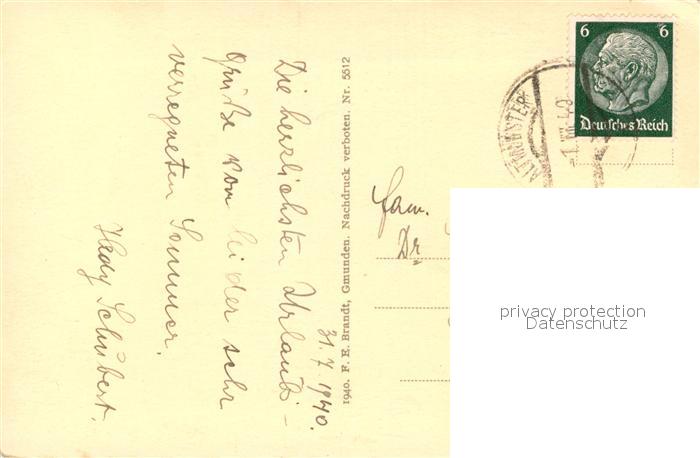 Die herzlichsten Urlaubs-
grüße vom leider sehr
verregneten Sommer.
Hedy Schubert.
31.7.1940.
1940. F. E. Brandt, Gmunden. Nachdruck verboten. Nr. 5512
Fam.
Dr
6 6
Deutsches Reich
privacy protection
Datenschutz